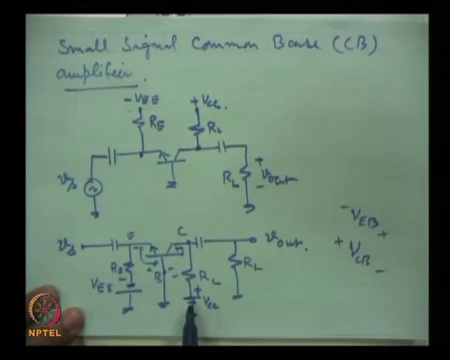 Small Signal Common Base (CB)
amplifier.
-VEE +VCC
RE RL
vs RL + Vout -
vs E C vout.
RE B RL RL
VEE + VCC
- VEB +
+ VCB -
NPTEL